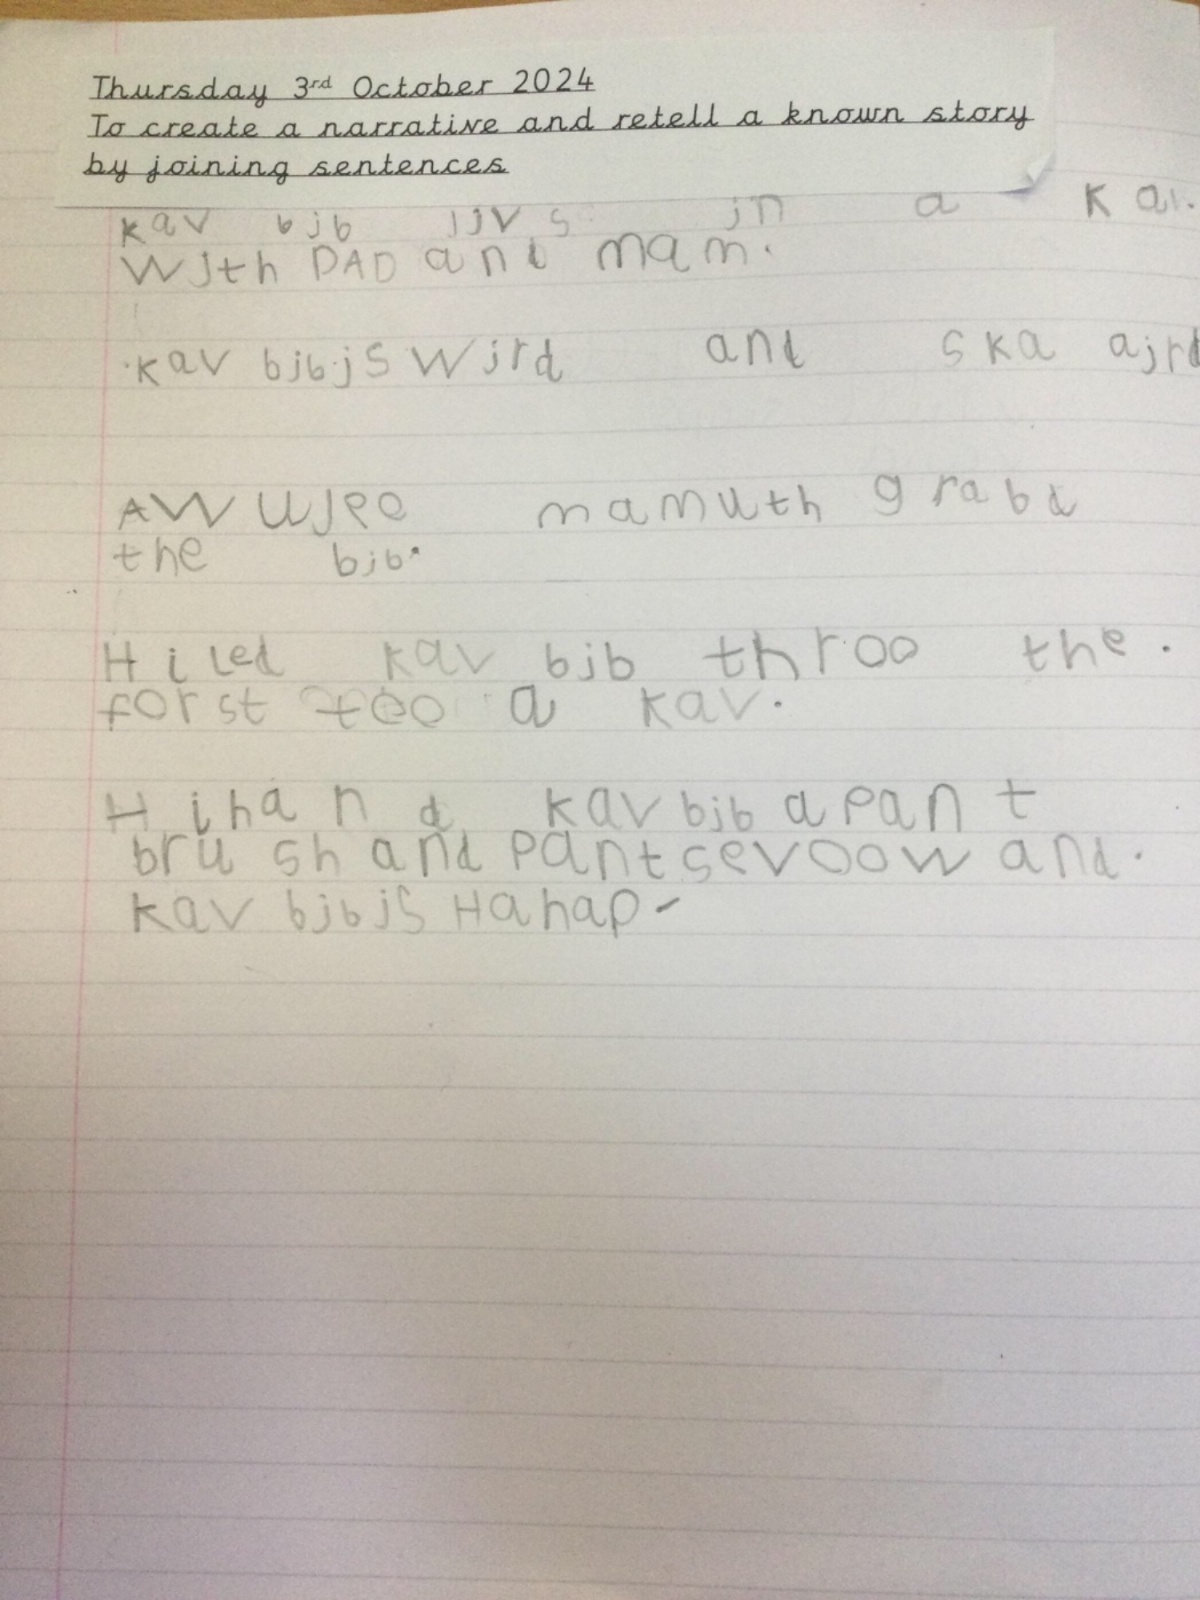 Thursday 3rd October 2024
To create a narrative and retell a known story
by joining sentences
kav bjb ljvs jn a
Wjth DAD and mam.
kav bjbjs Wjrd and ska ajrd
AW mamuth grabd
the bjb.
Hi Led kav bjb throo the.
forst too a kav.
Hi hand kav bjb a pant
brush and pant sevoow and.
kav bjbjs Ha hap